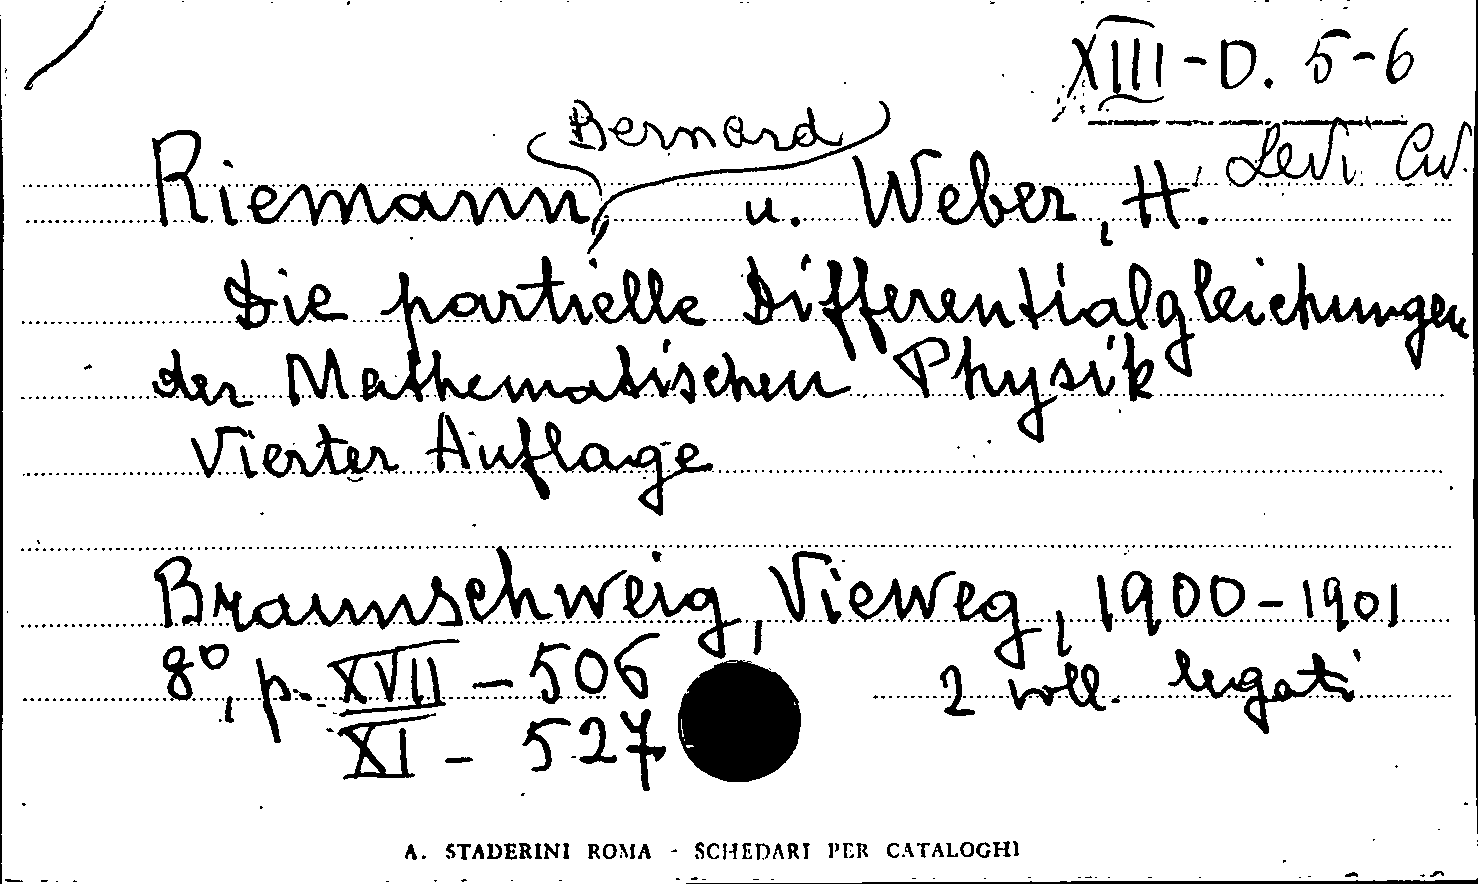 XIII - D. 5-6
Levi Civ.
Riemann, Bernard u. Weber, H.
Die partielle Differentialgleichungen
der Mathematischen Physik
Vierter Auflage
Braunschweig, Vieweg, 1900-1901
8º, p. XVII - 506 2 voll. legati
XI - 527
A. STADERINI ROMA - SCHEDARI PER CATALOGHI